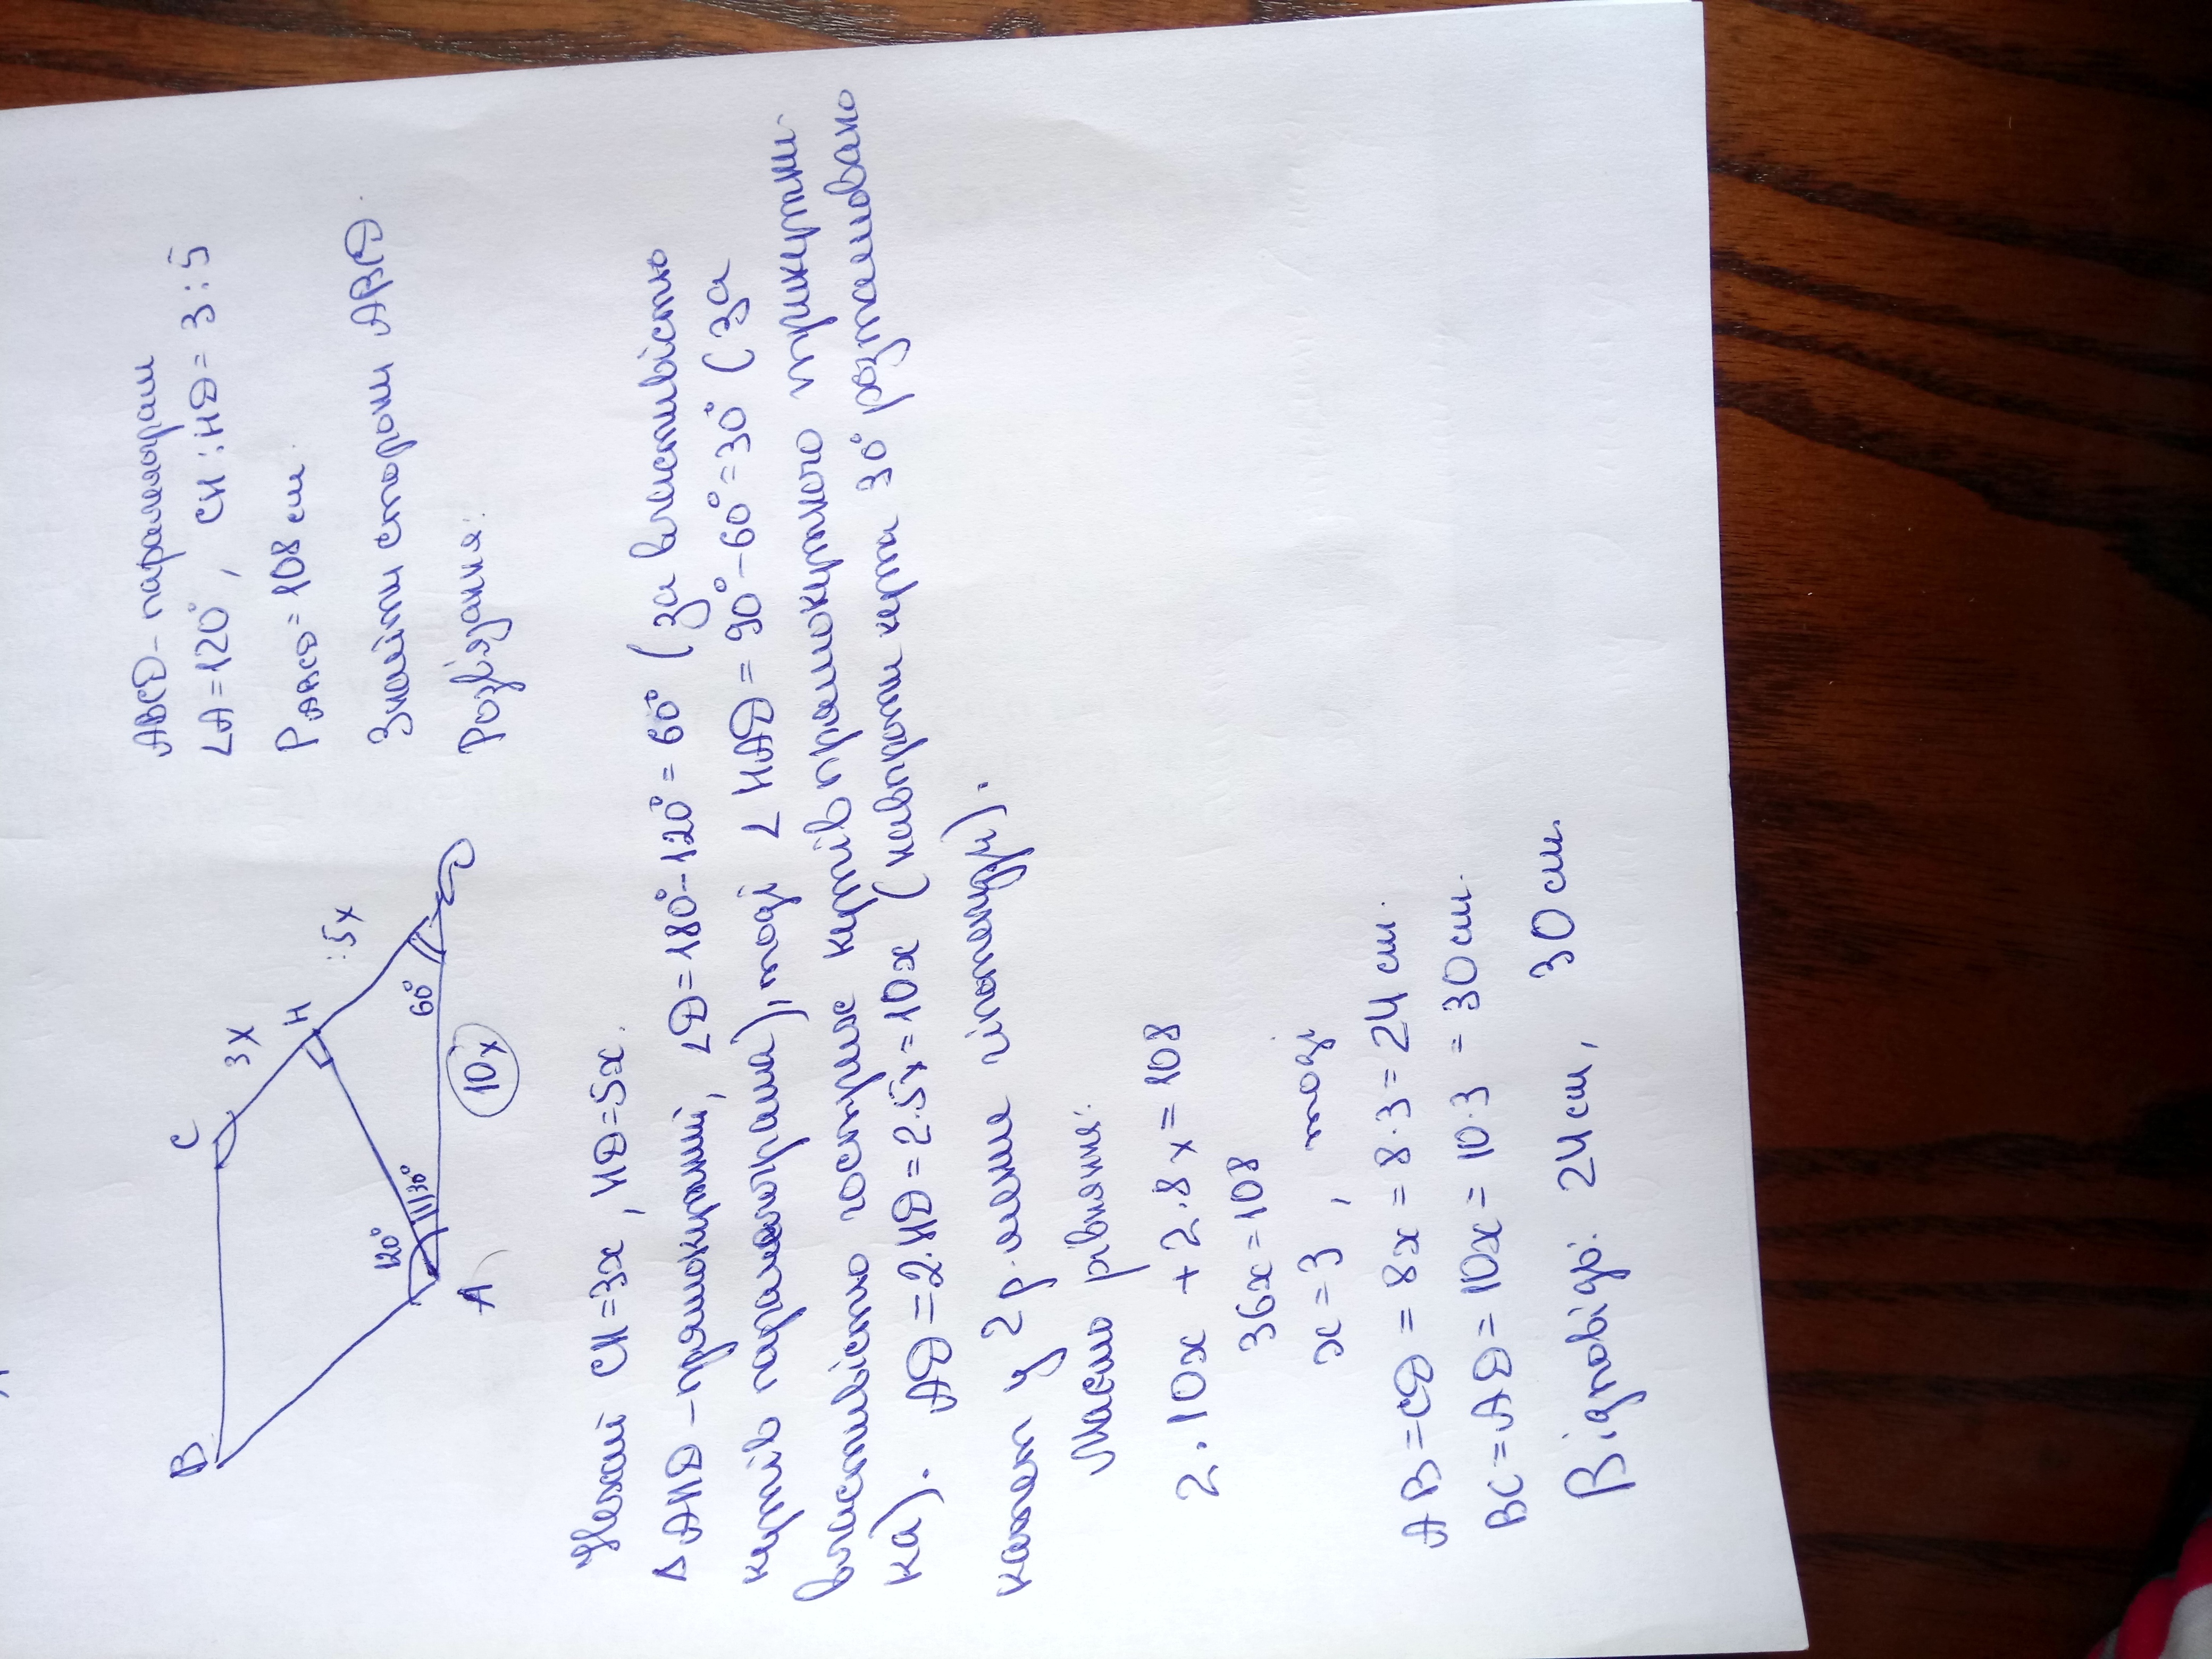 ABCD - паралелограм
∠A = 120°, CH : HD = 3 : 5
P ABCD = 108 см.
Знайти сторони ABCD.
Розв'язання:
B
C
3x
H
5x
120°
30°
60°
A
10x
D
Нехай CH = 3x, HD = 5x.
Δ AHD - прямокутний, ∠D = 180° - 120° = 60° (за властивістю
кутів паралелограма), тоді ∠HAD = 90° - 60° = 30° (за
властивістю гострих кутів прямокутного трикутни-
ка). AD = 2·HD = 2·5x = 10x (навпроти кута 30° розташовано
катет у 2 р. менше гіпотенузи).
Маємо рівняння:
2·10x + 2·8x = 108
36x = 108
x = 3, тоді
AB = CD = 8x = 8·3 = 24 см.
BC = AD = 10x = 10·3 = 30 см.
Відповідь: 24 см, 30 см.